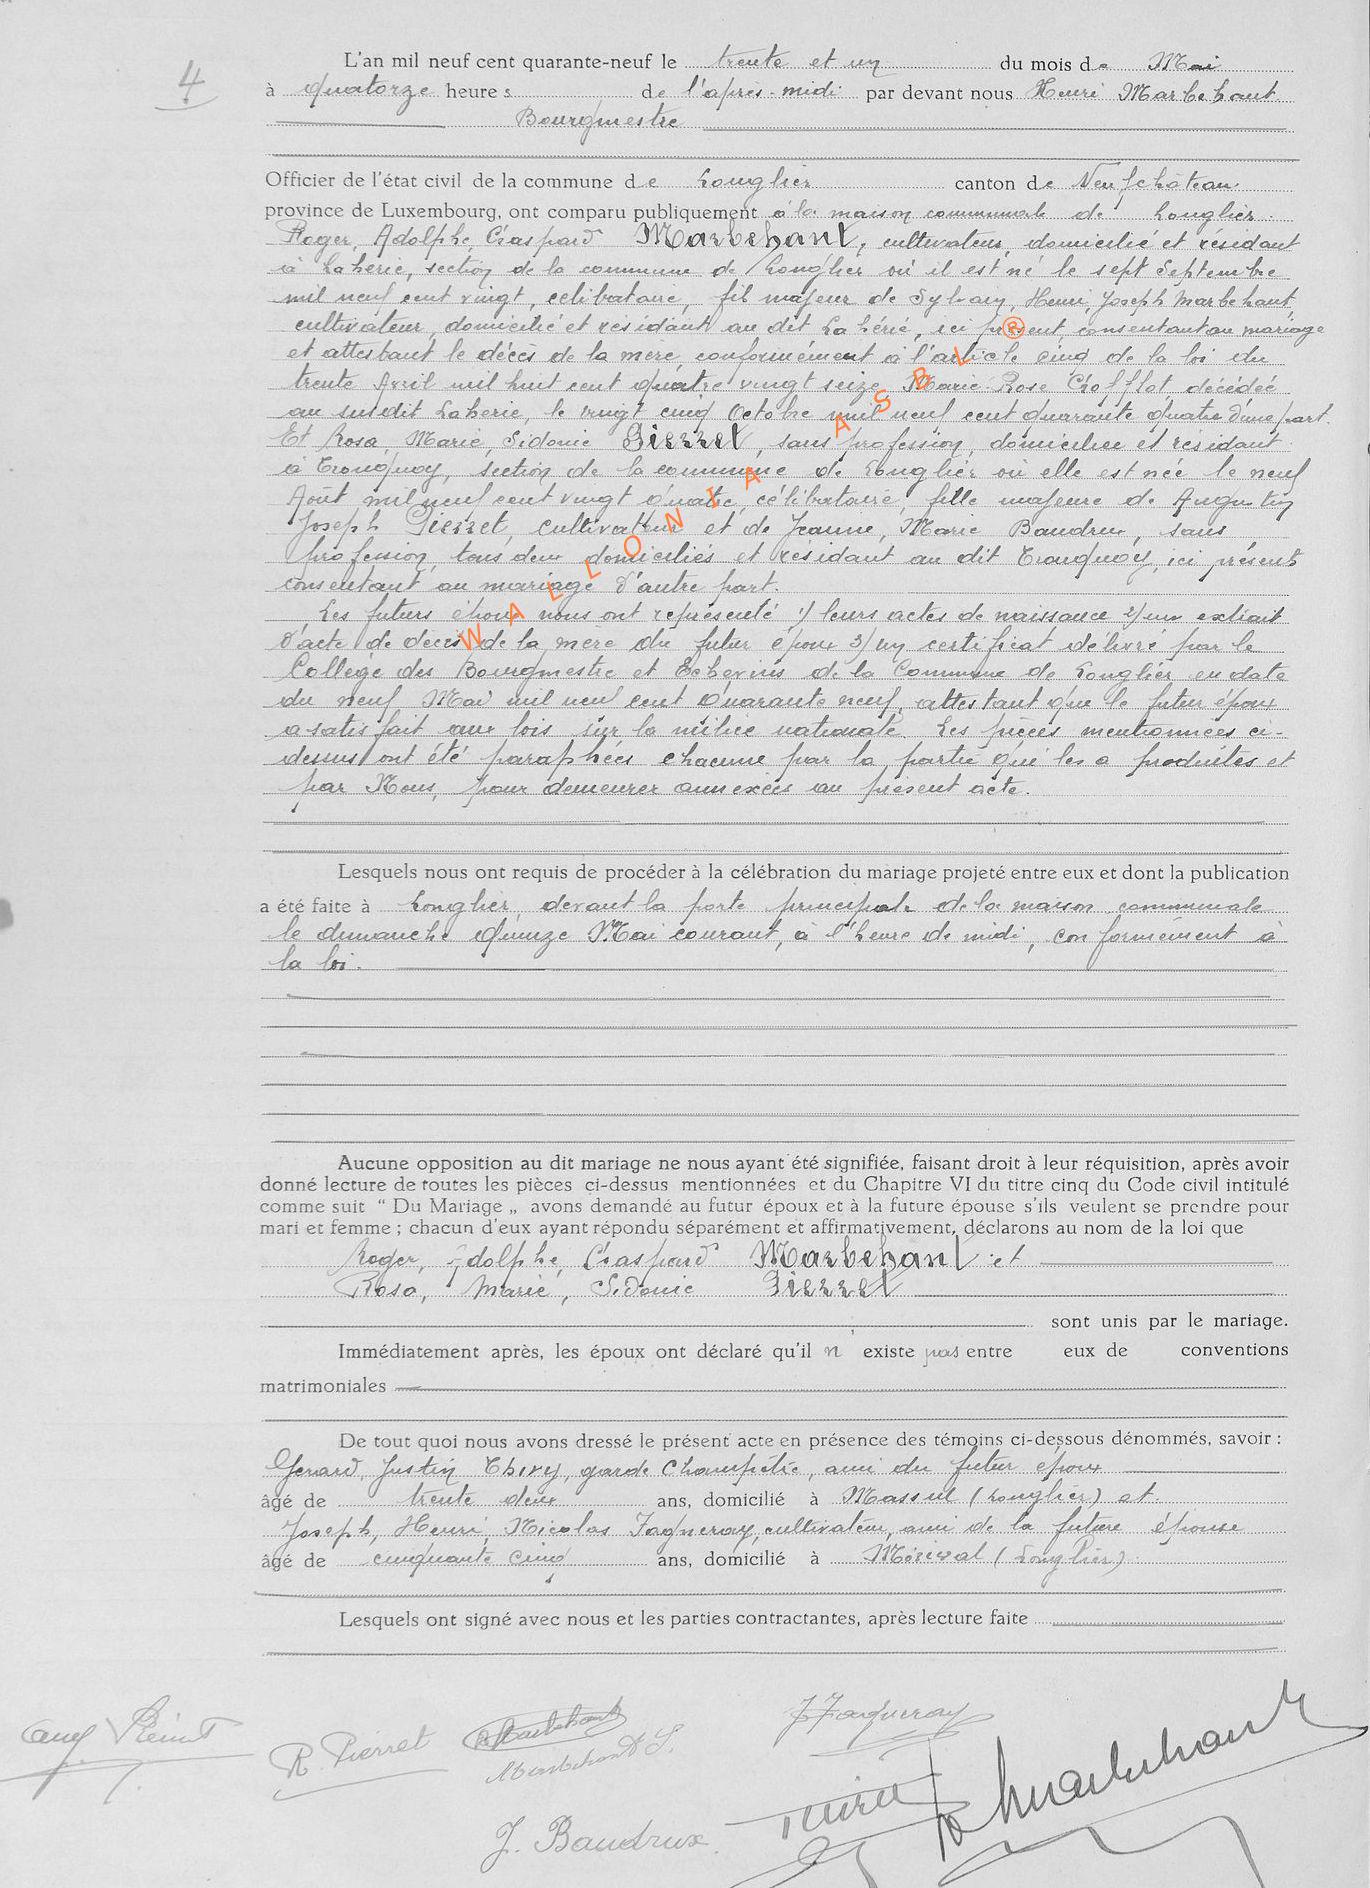 4
L'an mil neuf cent quarante-neuf le trente et un du mois de Mai
à quatorze heures de l'après-midi par devant nous Henri Marbehant
Bourgmestre
Officier de l'état civil de la commune de Longlier canton de Neufchâteau
province de Luxembourg, ont comparu publiquement à la maison communale de Longlier.
Roger, Adolphe, Gaspard Marbehant, cultivateur, domicilié et résidant
à Laherie, section de la commune de Longlier où il est né le sept Septembre
mil neuf cent vingt, célibataire, fils majeur de Sylvain, Henri, Joseph Marbehant,
cultivateur, domicilié et résidant au dit Lahérie, ici présent, consentant au mariage
et attestant le décès de la mère, conformément à l'article cinq de la loi du
trente Avril mil huit cent quatre vingt seize, Marie Rose Chofflot, décédée
au susdit Laherie, le vingt cinq Octobre mil neuf cent quarante quatre d'une part.
Et Rosa, Marie, Sidonie Pierret, sans profession, domiciliée et résidant
à Tronquoy, section de la commune de Longlier où elle est née le neuf
Août mil neuf cent vingt quatre, célibataire, fille majeure de Augustin
Joseph Pierret, cultivateur et de Jeanne, Marie Baudrux, sans
profession, tous deux domiciliés et résidant au dit Tronquoy, ici présents
consentant au mariage d'autre part.
Les futurs époux nous ont représenté 1/ leurs actes de naissance 2/ un extrait
d'acte de décès de la mère du futur époux 3/ un certificat délivré par le
Collège des Bourgmestre et Echevins de la Commune de Longlier en date
du neuf Mai mil neuf cent quarante neuf, attestant que le futur époux
a satisfait aux lois sur la milice nationale. Les pièces mentionnées ci-
dessus ont été paraphées chacune par la partie qui les a produites et
par Nous, pour demeurer annexées au présent acte.
Lesquels nous ont requis de procéder à la célébration du mariage projeté entre eux et dont la publication
a été faite à Longlier, devant la porte principale de la maison communale
le dimanche quinze Mai courant, à l'heure de midi, conformément à
la loi.
Aucune opposition au dit mariage ne nous ayant été signifiée, faisant droit à leur réquisition, après avoir
donné lecture de toutes les pièces ci-dessus mentionnées et du Chapitre VI du titre cinq du Code civil intitulé
comme suit “ Du Mariage „ avons demandé au futur époux et à la future épouse s'ils veulent se prendre pour
mari et femme ; chacun d'eux ayant répondu séparément et affirmativement, déclarons au nom de la loi que
Roger, Adolphe, Gaspard Marbehant et
Rosa, Marie, Sidonie Pierret
sont unis par le mariage.
Immédiatement après, les époux ont déclaré qu'il n'existe pas entre eux de conventions
matrimoniales
De tout quoi nous avons dressé le présent acte en présence des témoins ci-dessous dénommés, savoir :
Gérard, Justin Thiry, garde Champêtre, ami du futur époux
âgé de trente deux ans, domicilié à Massul (Longlier) et
Joseph, Henri, Nicolas Fagneray, cultivateur, ami de la future épouse
âgé de cinquante cinq ans, domicilié à Morival (Longlier)
Lesquels ont signé avec nous et les parties contractantes, après lecture faite
Aug Pierret
R. Pierret
R Marbehant
Marbehant S.
J Fagneray
J. Baudrux
Thiry
H Marbehant
WALLONIA ASBL ®